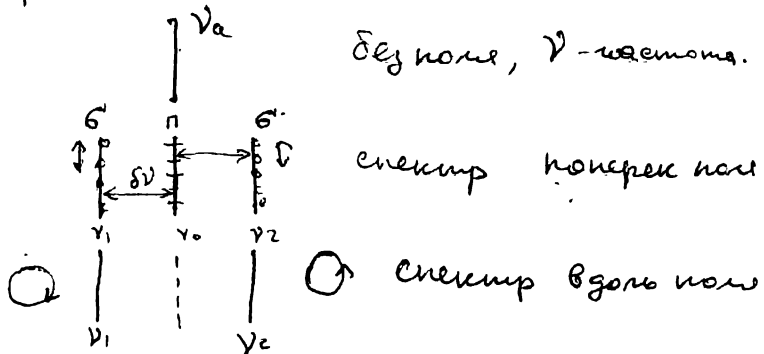 νₐ
без поля, ν - частота.
σ π σ
δν
спектр поперек поля
ν₁ ν₀ ν₂
спектр вдоль поля
ν₁ ν₂